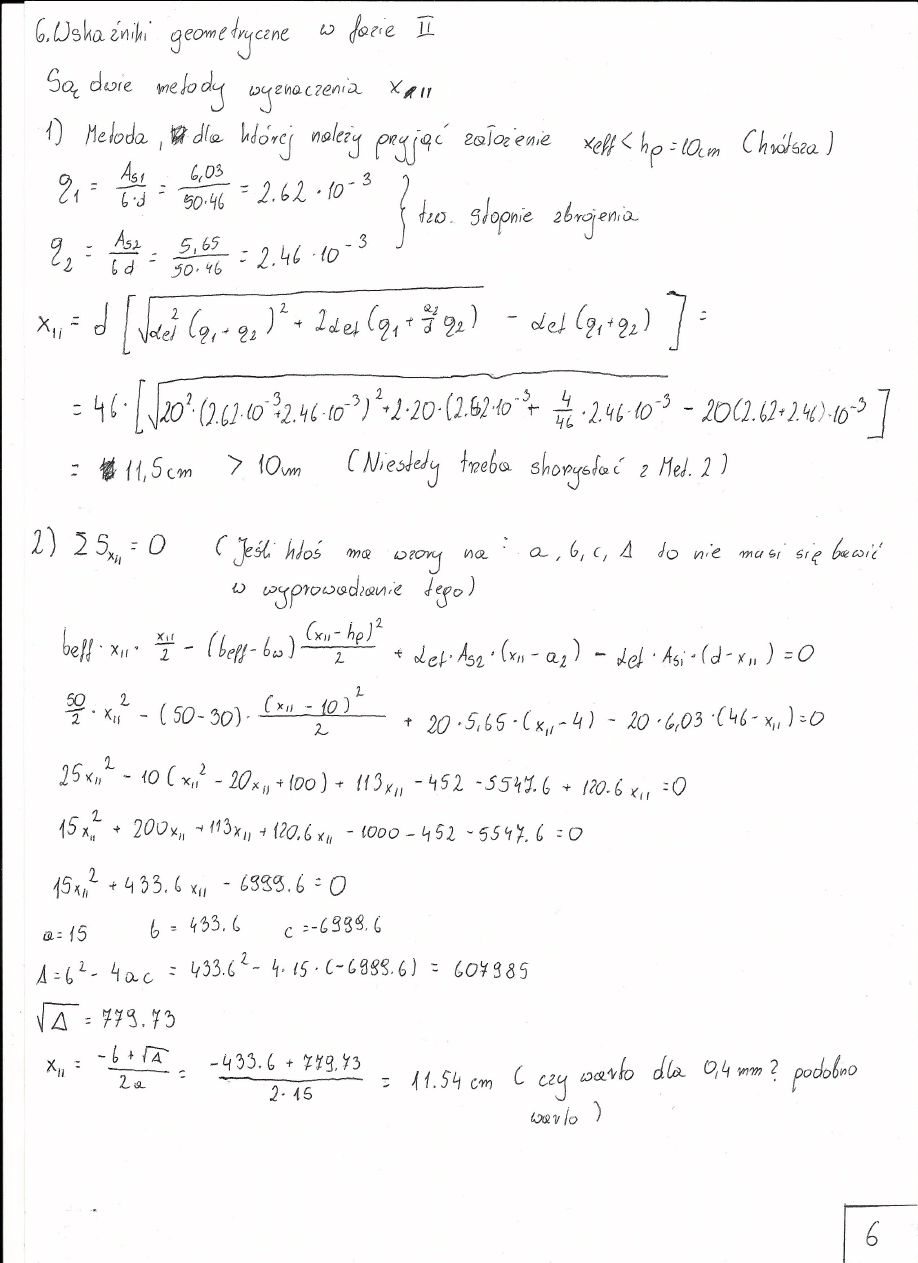 6. Wskaźniki geometryczne w fazie II
Są dwie metody wyznaczenia x_II
1) Metoda, dla której należy pryjąć założenie xeff < hp = 10cm (krótsza)
ρ₁ = As1/(b·d) = 6,03/(50·46) = 2.62·10⁻³
} tzw. stopnie zbrojenia
ρ₂ = As2/(b d) = 5,65/(50·46) = 2.46·10⁻³
x_II = d [√(αet²(ρ₁+ρ₂)² + 2αet(ρ₁+a₂/d ρ₂)) - αet(ρ₁+ρ₂)] =
= 46·[√(20²·(2.62·10⁻³+2.46·10⁻³)²+2·20·(2.62·10⁻³+ 4/46 ·2.46·10⁻³) - 20(2.62+2.46)·10⁻³]
= 11,5cm > 10cm (Niestety trzeba skorzystać z Met. 2)
2) ΣS_xII = 0 (Jeśli ktoś ma wzory na: a, b, c, Δ to nie musi się bawić
w wyprowadzanie tego)
beff·x_II·x_II/2 - (beff-bw)(x_II-hp)²/2 + αet·As2·(x_II-a₂) - αet·As1·(d-x_II) = 0
50/2·x_II² - (50-30)·(x_II-10)²/2 + 20·5,65·(x_II-4) - 20·6,03·(46-x_II)=0
25x_II² - 10(x_II² - 20x_II+100) + 113x_II - 452 - 5547.6 + 120.6x_II = 0
15x_II² + 200x_II + 113x_II + 120.6x_II - 1000 - 452 - 5547.6 = 0
15x_II² + 433.6x_II - 6999.6 = 0
a=15 b = 433.6 c = -6999.6
Δ=b² - 4ac = 433.6² - 4·15·(-6999.6) = 607985
√Δ = 779.73
x_II = (-b+√Δ)/2a = (-433.6 + 779,73)/(2·15) = 11.54 cm (czy warto dla 0,4 mm? podobno
warto)
6